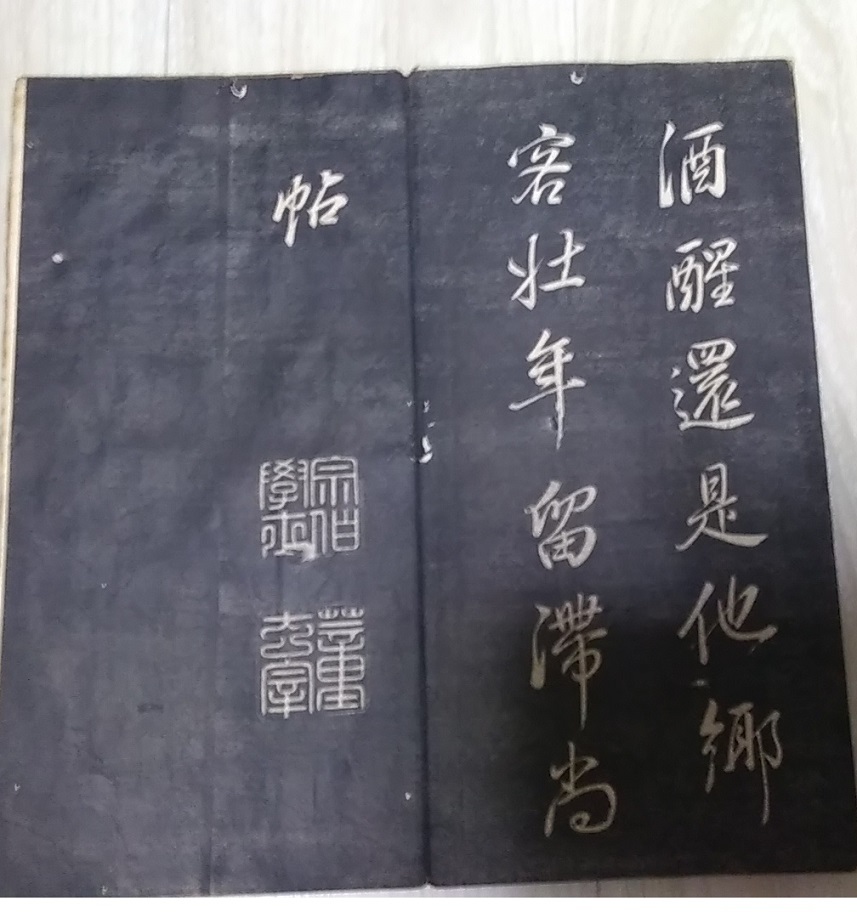 酒醒還是他鄉
客壯年留滯尚
帖
宗伯學士
董玄宰